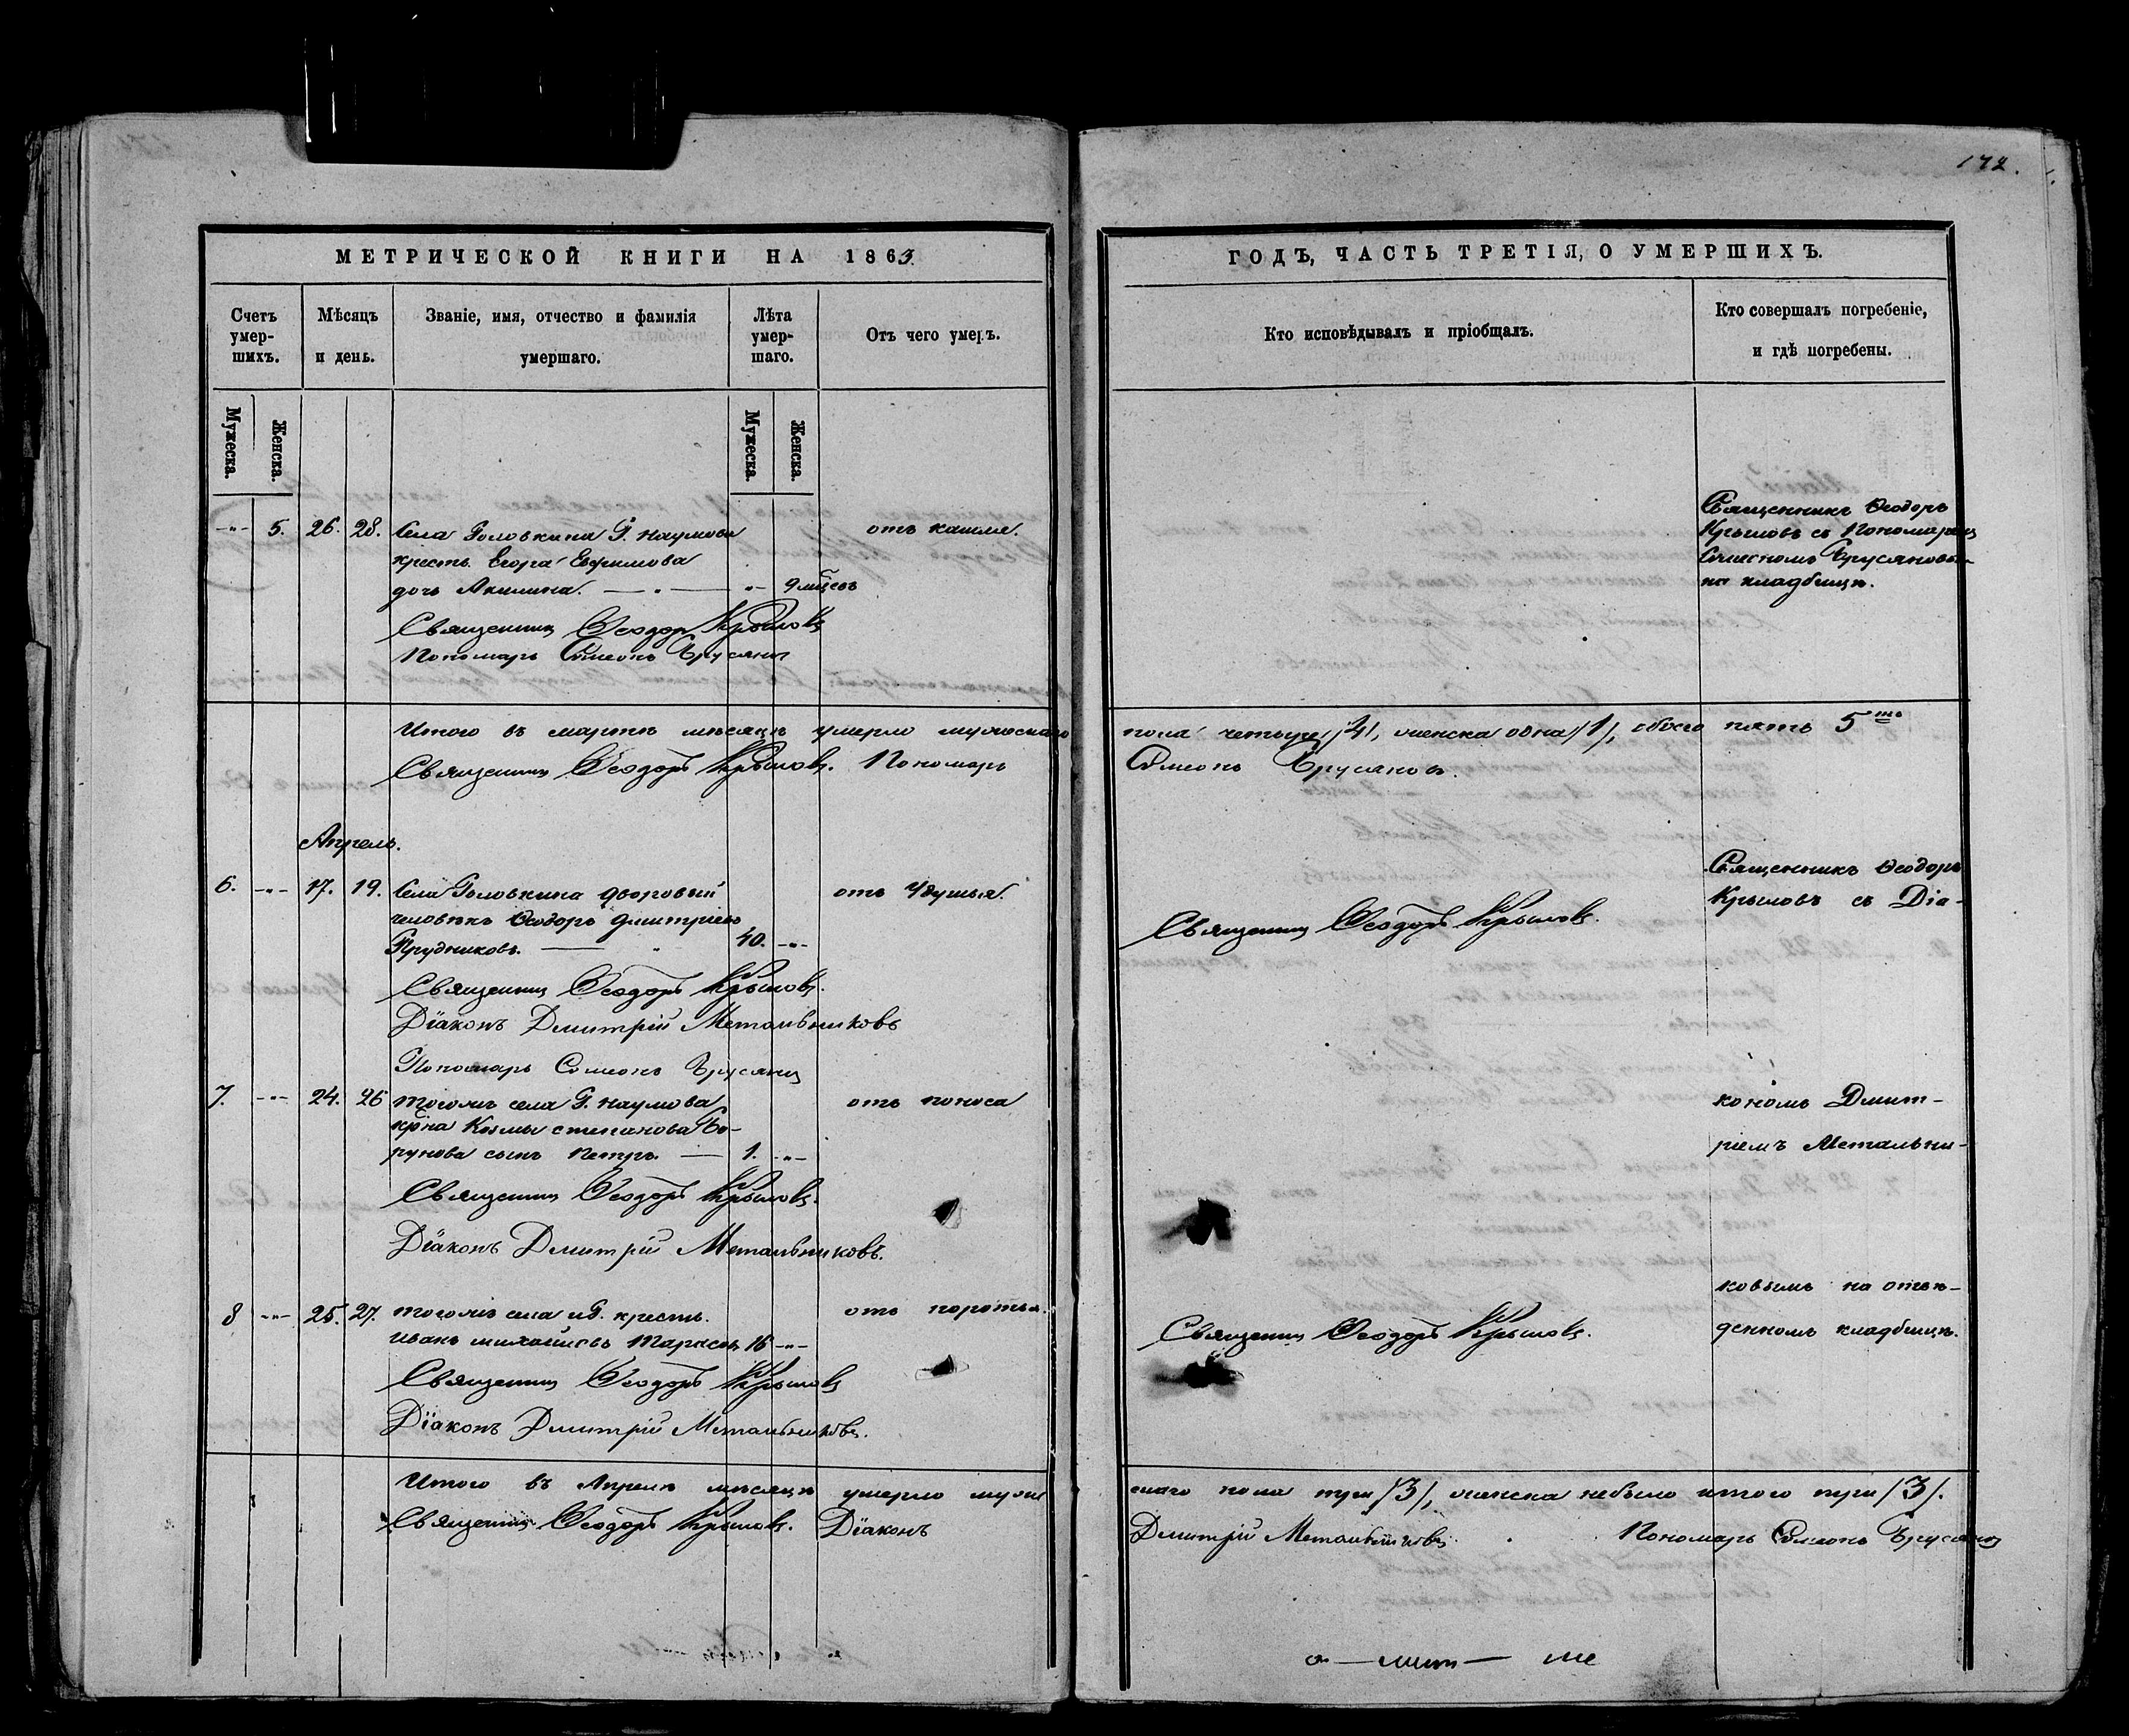 172.
МЕТРИЧЕСКОЙ КНИГИ НА 1863.
Счетъ умер-шихъ.
Мѣсяцъ и день.
Званіе, имя, отчество и фамилія умершаго.
Лѣта умер-шаго.
Отъ чего умеръ.
Мужеска.
Женска.
Мужеска.
Женска.
-"- 5. 26. 28. Села Головкина Г. Наумова отъ кашля.
кресть. Егора Ефимова
дочь Акилина. -"- 9 мцевъ
Священникъ Ѳеодоръ Крыловъ
Пономарь Симеонъ
Итого въ мартѣ мѣсяцѣ умерло мужескаго
Священникъ Ѳеодоръ Крыловъ. Пономарь
Апрель.
6. -"- 17. 19. Села Головкина дворовый отъ удушья.
человѣкъ Ѳеодоръ Дмитріевъ
Прудниковъ. 40. -"-
Священникъ Ѳеодоръ Крыловъ.
Діаконъ Дмитрій Метальниковъ
Пономарь Симеонъ
7. -"- 24. 26 тогожъ села Г. Наумова отъ поноса
крна Козмы Степанова
сынъ Петръ. 1. -"-
Священникъ Ѳеодоръ Крыловъ.
Діаконъ Дмитрій Метальниковъ.
8 -"- 25. 27. тогожъ села и Г. кресть. отъ
Иванъ Михайловъ Тарасовъ 16 -"-
Священникъ Ѳеодоръ Крыловъ
Діаконъ Дмитрій Метальниковъ.
Итого въ Апрелѣ мѣсяцѣ умерло муже
Священникъ Ѳеодоръ Крыловъ. Діаконъ
ГОДЪ, ЧАСТЬ ТРЕТІЯ, О УМЕРШИХЪ.
Кто исповѣдывалъ и пріобщалъ.
Кто совершалъ погребеніе, и гдѣ погребены.
Священникъ Ѳеодоръ
Крыловъ съ Пономаремъ
Симеономъ
на кладбищѣ.
пола четыре /4/, женска одна /1/, обоего пять 5
Симеонъ
Священникъ Ѳеодоръ
Крыловъ съ Діа-
Священникъ Ѳеодоръ Крыловъ.
кономъ Дмит-
ріемъ Метальни-
ковымъ на отве-
денномъ кладбищѣ.
Священникъ Ѳеодоръ Крыловъ.
скаго пола три /3/, женска небыло итого три /3/.
Дмитрій Метальниковъ. Пономарь Симеонъ